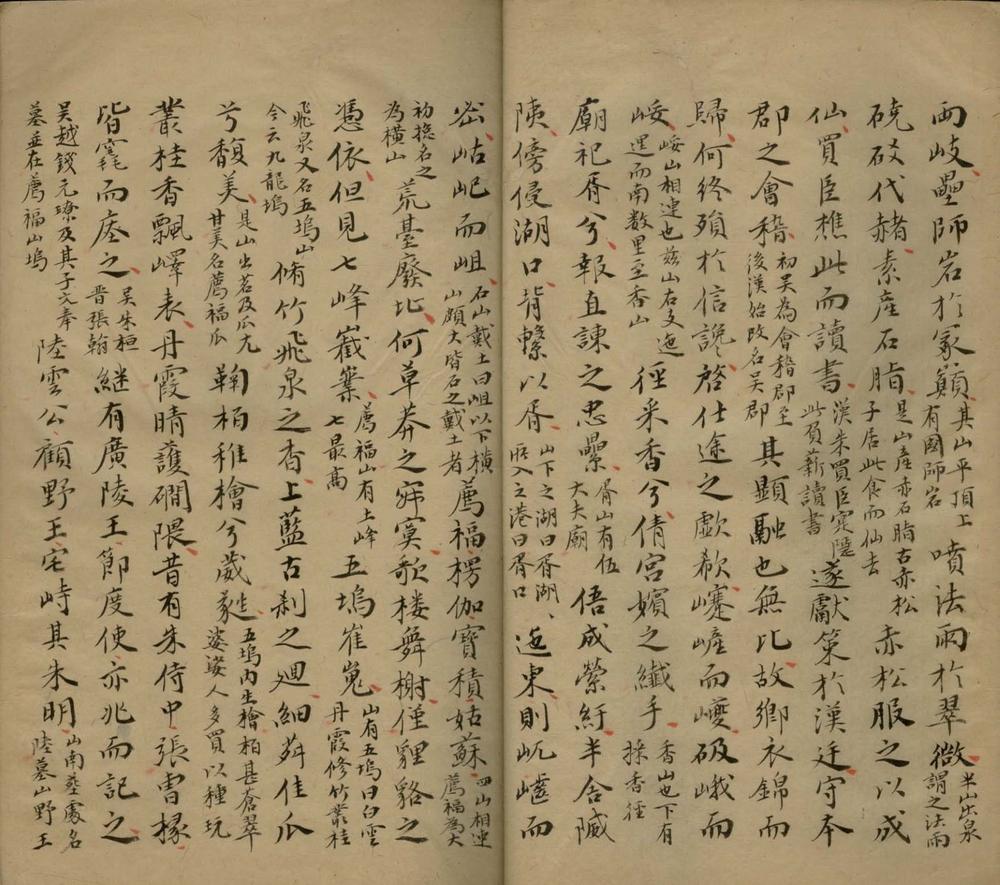 兩岐壘師岩於冢巔其山平頂上有國師岩噴法雨於翠微半山出泉謂之法雨
磽砐代赭素産石脂是山産赤石脂古赤松子居此食而仙去赤松服之以成
仙買臣樵此而讀書漢朱買臣寔隱此負薪讀書遂獻策於漢廷守本
郡之會稽初吴為會稽郡至後漢始改名吴郡其顯融也無比故鄉衣錦而
歸何終殞於信讒啓仕途之歔欷嵼而巙岋峨而
崾崾山相連也兹山右支迤邐而南数里至香山徑采香兮倩宮嬪之纖手香山也下有採香徑
廟祀胥兮報直諌之忠纍胥山有伍大夫廟縈紆半含
陝傍侵湖口背繫以胥山下之湖曰胥湖、所入之港曰胥口迤東則岏而
岵屺而岨石山戴土曰岨以下橫山頗大皆石之戴土者薦福楞伽寶積姑蘇四山相連薦福為大
初捴名之為橫山荒臺廢圯何草莽之寂寞歌楼舞榭僅貍貉之
憑依但見七峰嶻嶪薦福山有七峰七最高五塢崔嵬山有五塢曰白雲丹霞修竹叢桂
飛泉又名五塢山今云九龍塢脩竹飛泉之杳上藍古刹之廻細佳瓜
兮馥美是山出茗及瓜尤甘美名薦福瓜鞠柏稚檜兮葳蕤五塢内生檜柏甚蒼翠婆娑人多買以種玩
叢桂香飄嶧表丹霞晴護磵隈昔有朱侍中張曹掾
皆窀而之吴朱桓晋張翰継有廣陵王節度使亦兆而記之
吴越錢元璙及其子文奉墓並在薦福山塢陸雲公顧野王宅峙其朱明山南葬處名陸墓山野王